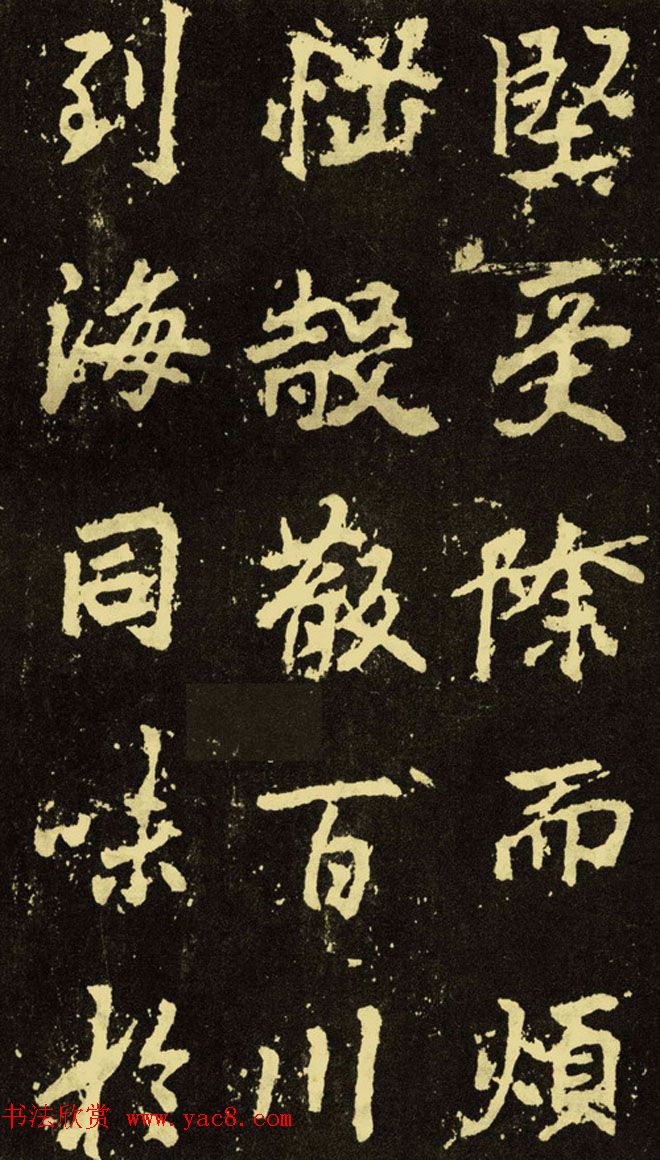 堅受除而煩
惱殻散百川
到海同味於
书法欣赏 www.yac8.com